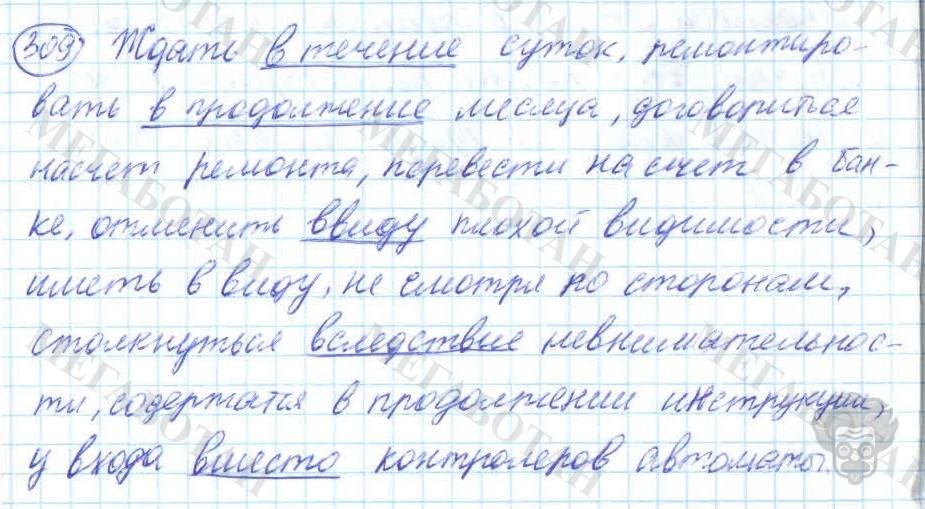 309) Ждать в течение суток, ремонтиро-
вать в продолжение месяца, договориться
насчет ремонта, перевести на счет в бан-
ке, отменить ввиду плохой видимости,
иметь в виду, не смотря по сторонам,
столкнуться вследствие невнимательнос-
ти, содержатся в продолжении инструкции,
у входа вместо контролеров автоматы.
МЕГАБОТАН